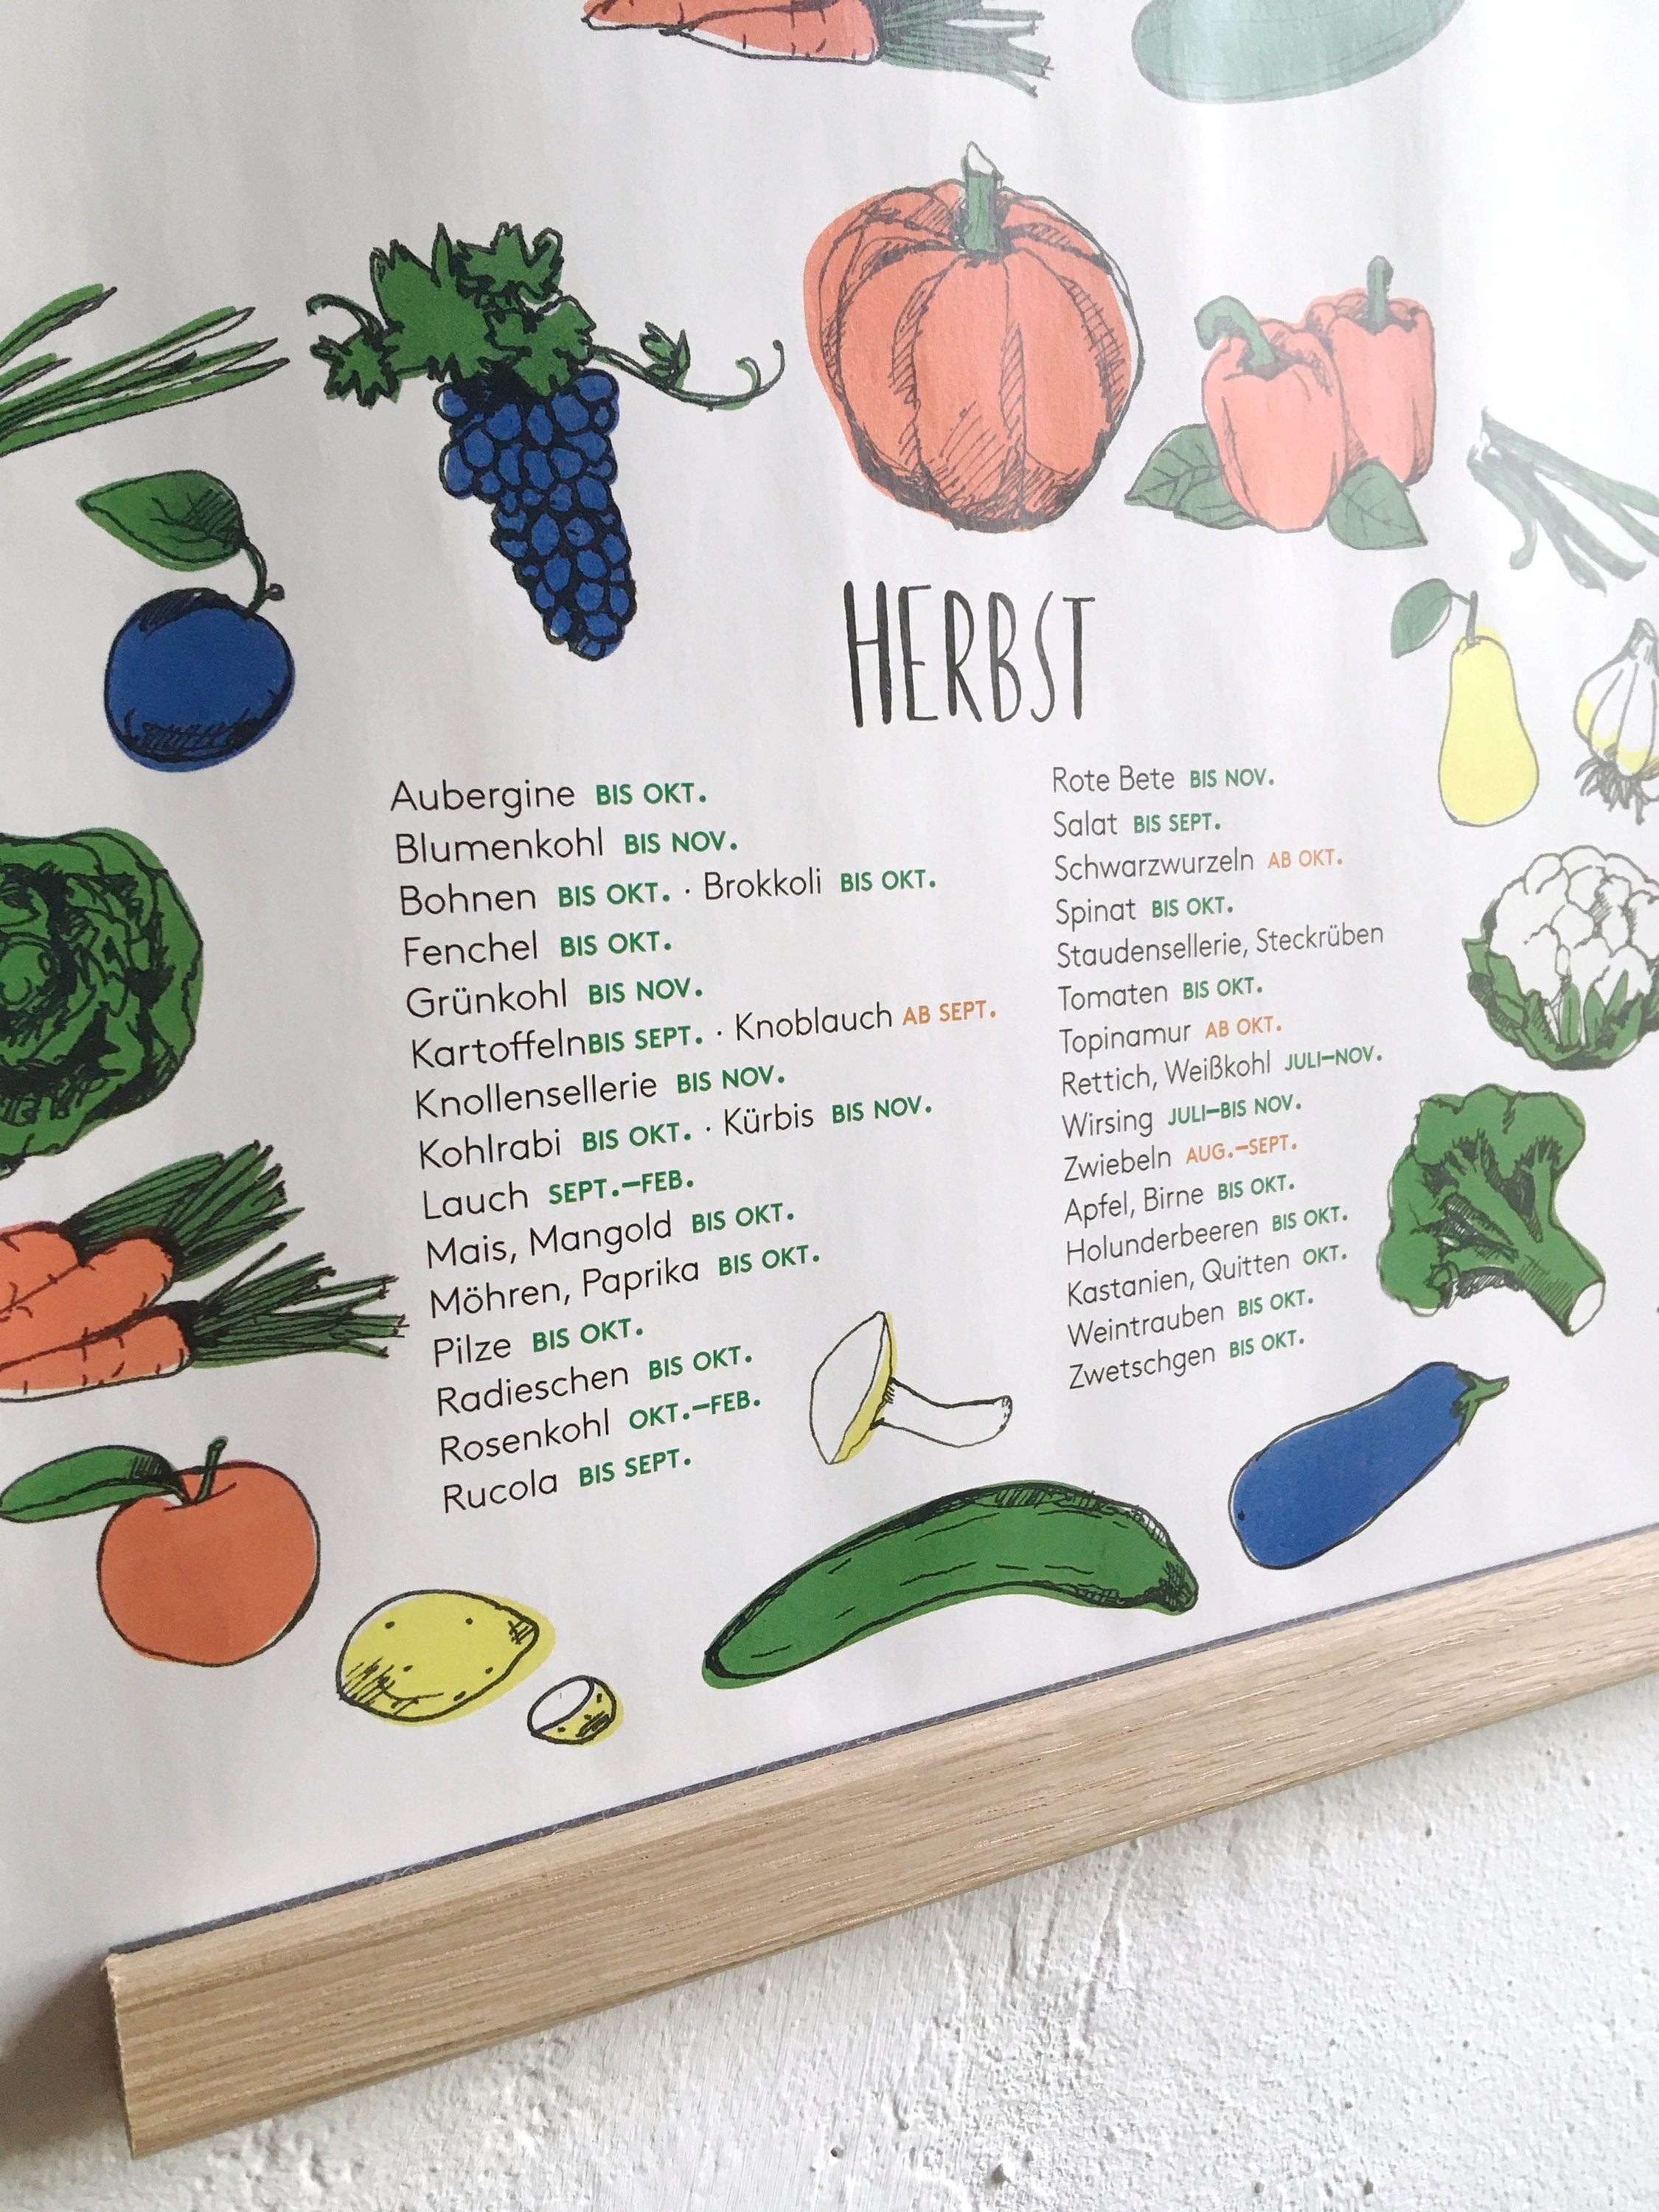 HERBST
Aubergine BIS OKT.
Blumenkohl BIS NOV.
Bohnen BIS OKT. · Brokkoli BIS OKT.
Fenchel BIS OKT.
Grünkohl BIS NOV.
KartoffelnBIS SEPT. · Knoblauch AB SEPT.
Knollensellerie BIS NOV.
Kohlrabi BIS OKT. · Kürbis BIS NOV.
Lauch SEPT.–FEB.
Mais, Mangold BIS OKT.
Möhren, Paprika BIS OKT.
Pilze BIS OKT.
Radieschen BIS OKT.
Rosenkohl OKT.–FEB.
Rucola BIS SEPT.
Rote Bete BIS NOV.
Salat BIS SEPT.
Schwarzwurzeln AB OKT.
Spinat BIS OKT.
Staudensellerie, Steckrüben
Tomaten BIS OKT.
Topinamur AB OKT.
Rettich, Weißkohl JULI–NOV.
Wirsing JULI–BIS NOV.
Zwiebeln AUG.–SEPT.
Apfel, Birne BIS OKT.
Holunderbeeren BIS OKT.
Kastanien, Quitten OKT.
Weintrauben BIS OKT.
Zwetschgen BIS OKT.